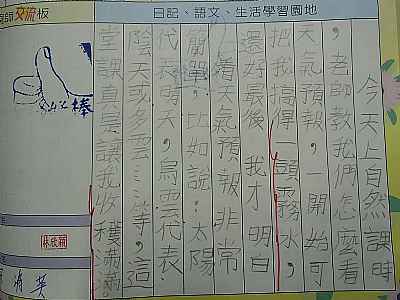 日記、語文、生活學習園地
師交流板
今天上自然課時
，老師教我們怎麼看
天氣預報，一開始可
把我搞得一頭霧水，
還好最後我才明白
看天氣預報非常
簡單，比如說：太陽
代表晴天，烏雲代表
陰天或多雲……等，這
堂課真是讓我收穫滿滿。
棒